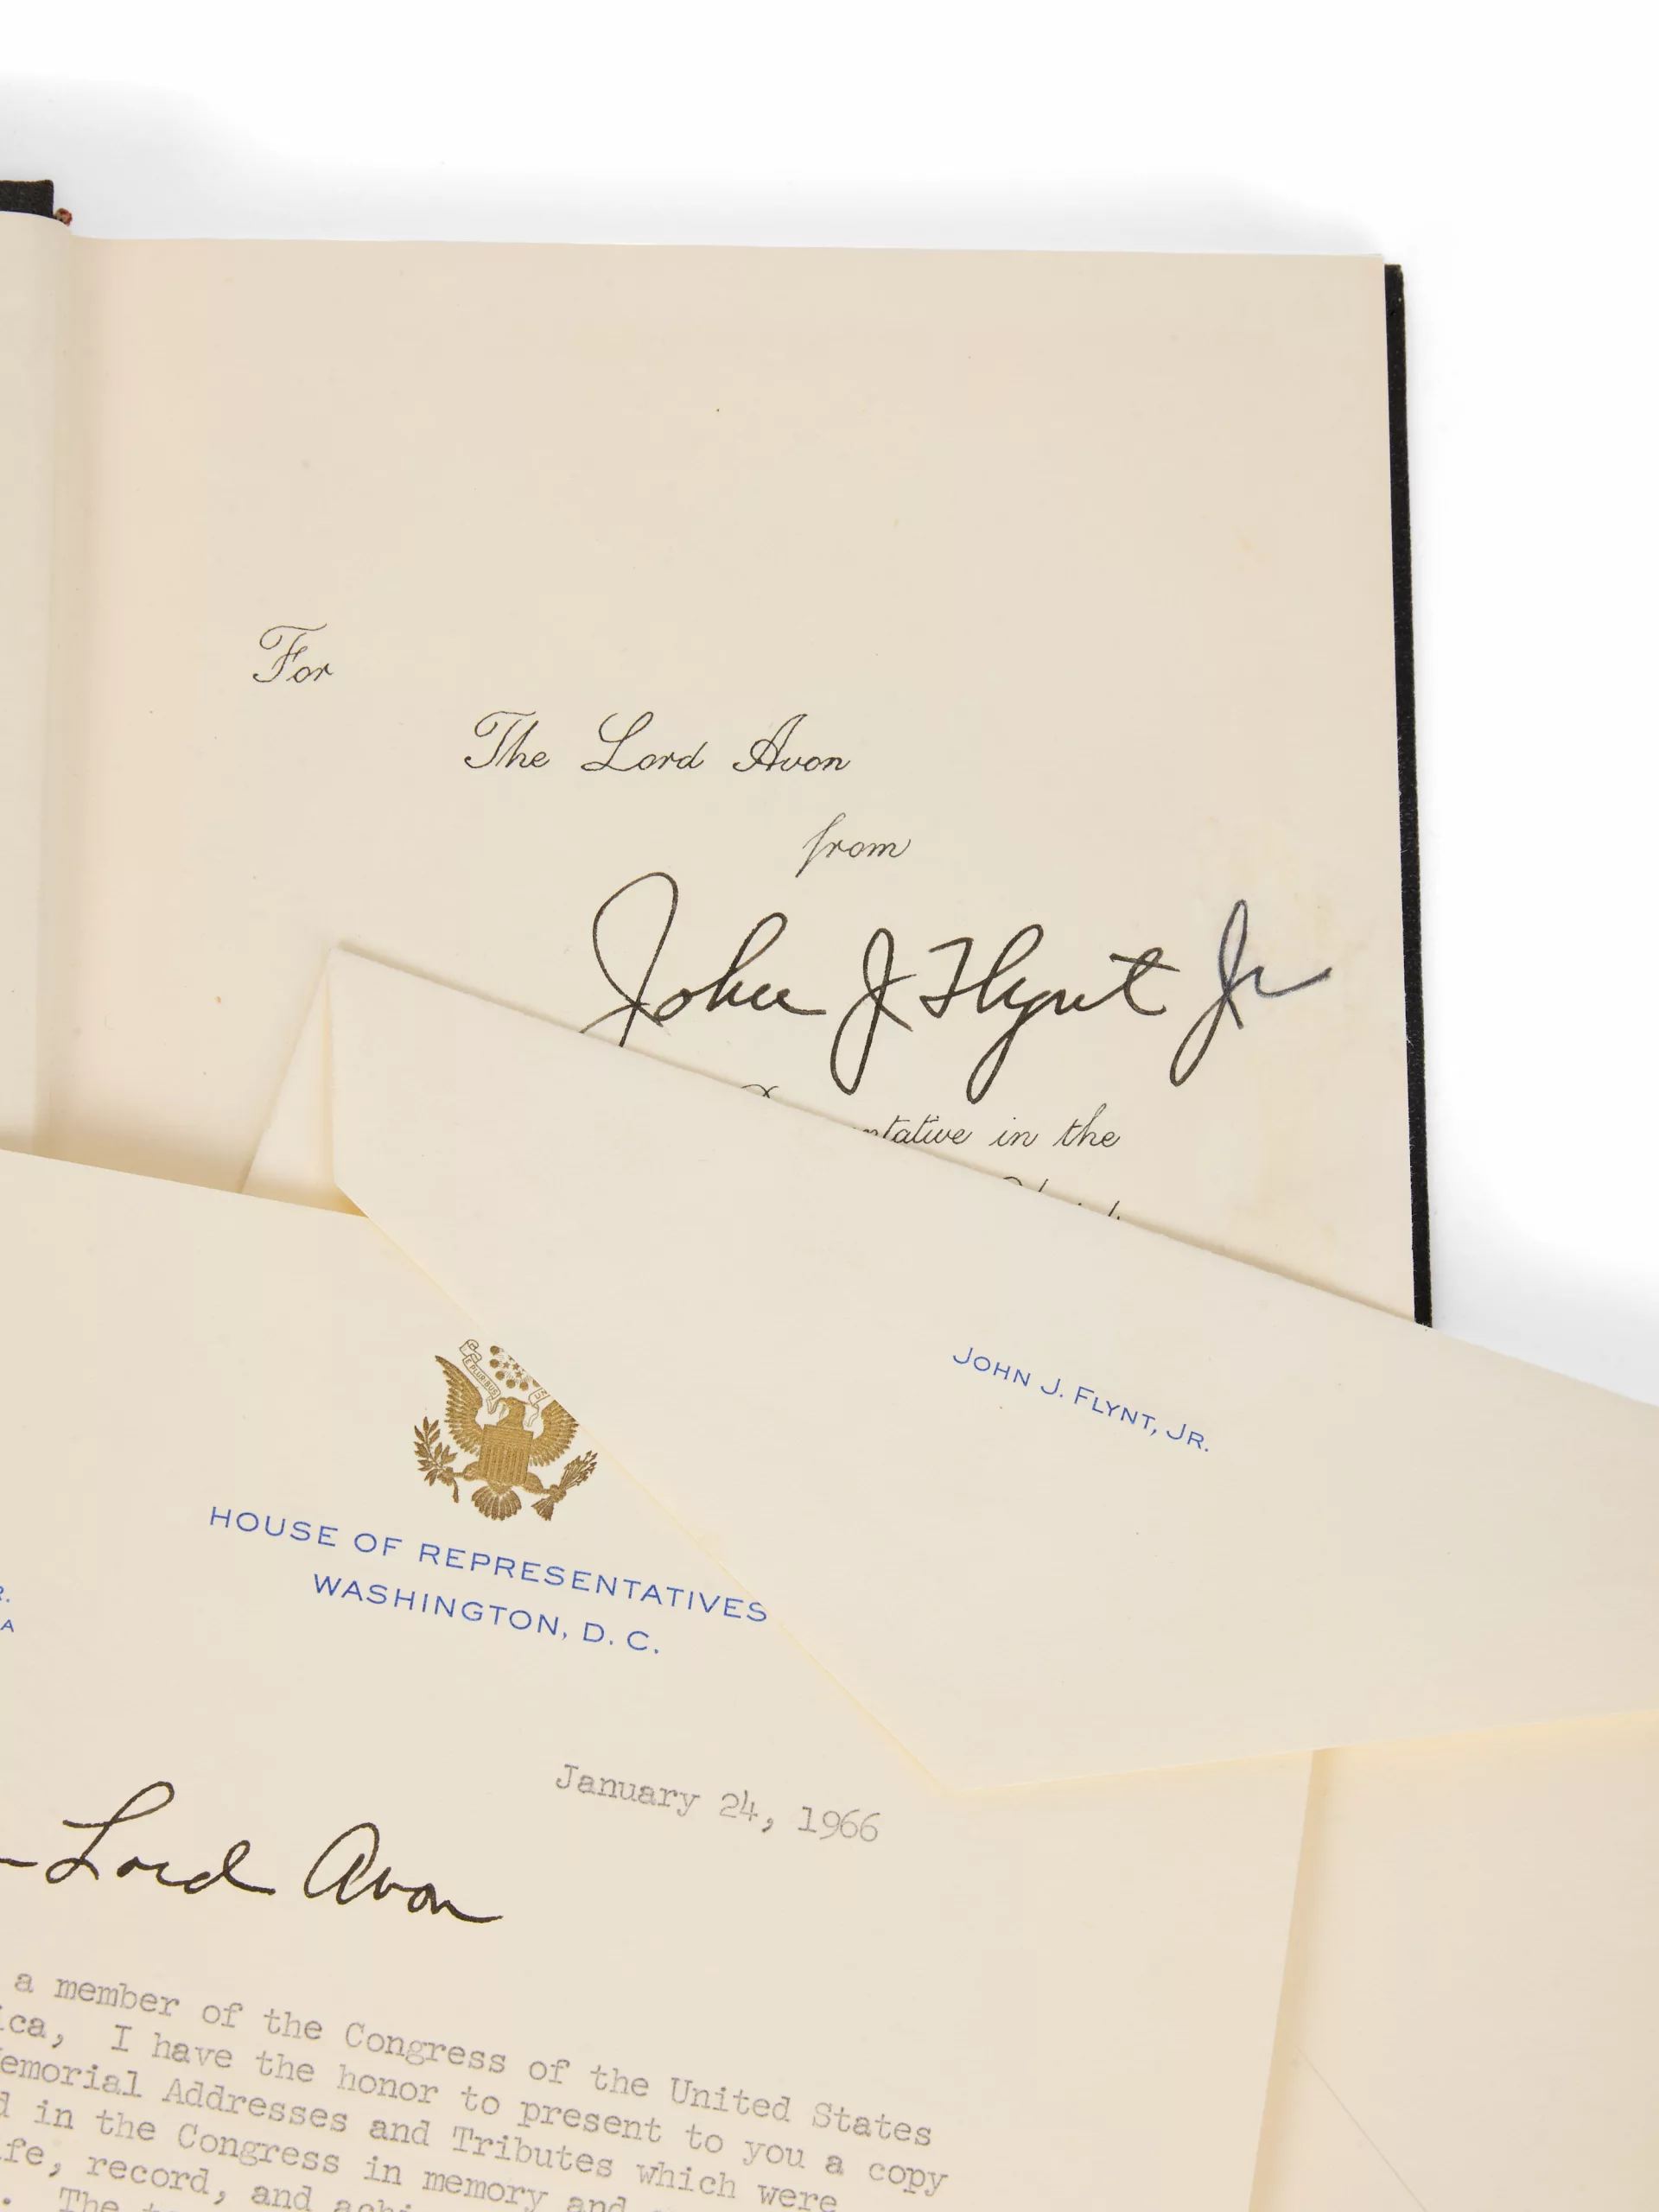 For
The Lord Avon
from
John J Flynt Jr
in the
JOHN J. FLYNT, JR.
E PLURIBUS UN
HOUSE OF REPRESENTATIVES
WASHINGTON, D. C.
R.
A
January 24, 1966
Lord Avon
a member of the Congress of the United States
ica, I have the honor to present to you a copy
emorial Addresses and Tributes which were
d in the Congress in memory and
fe, record, and achi
. The